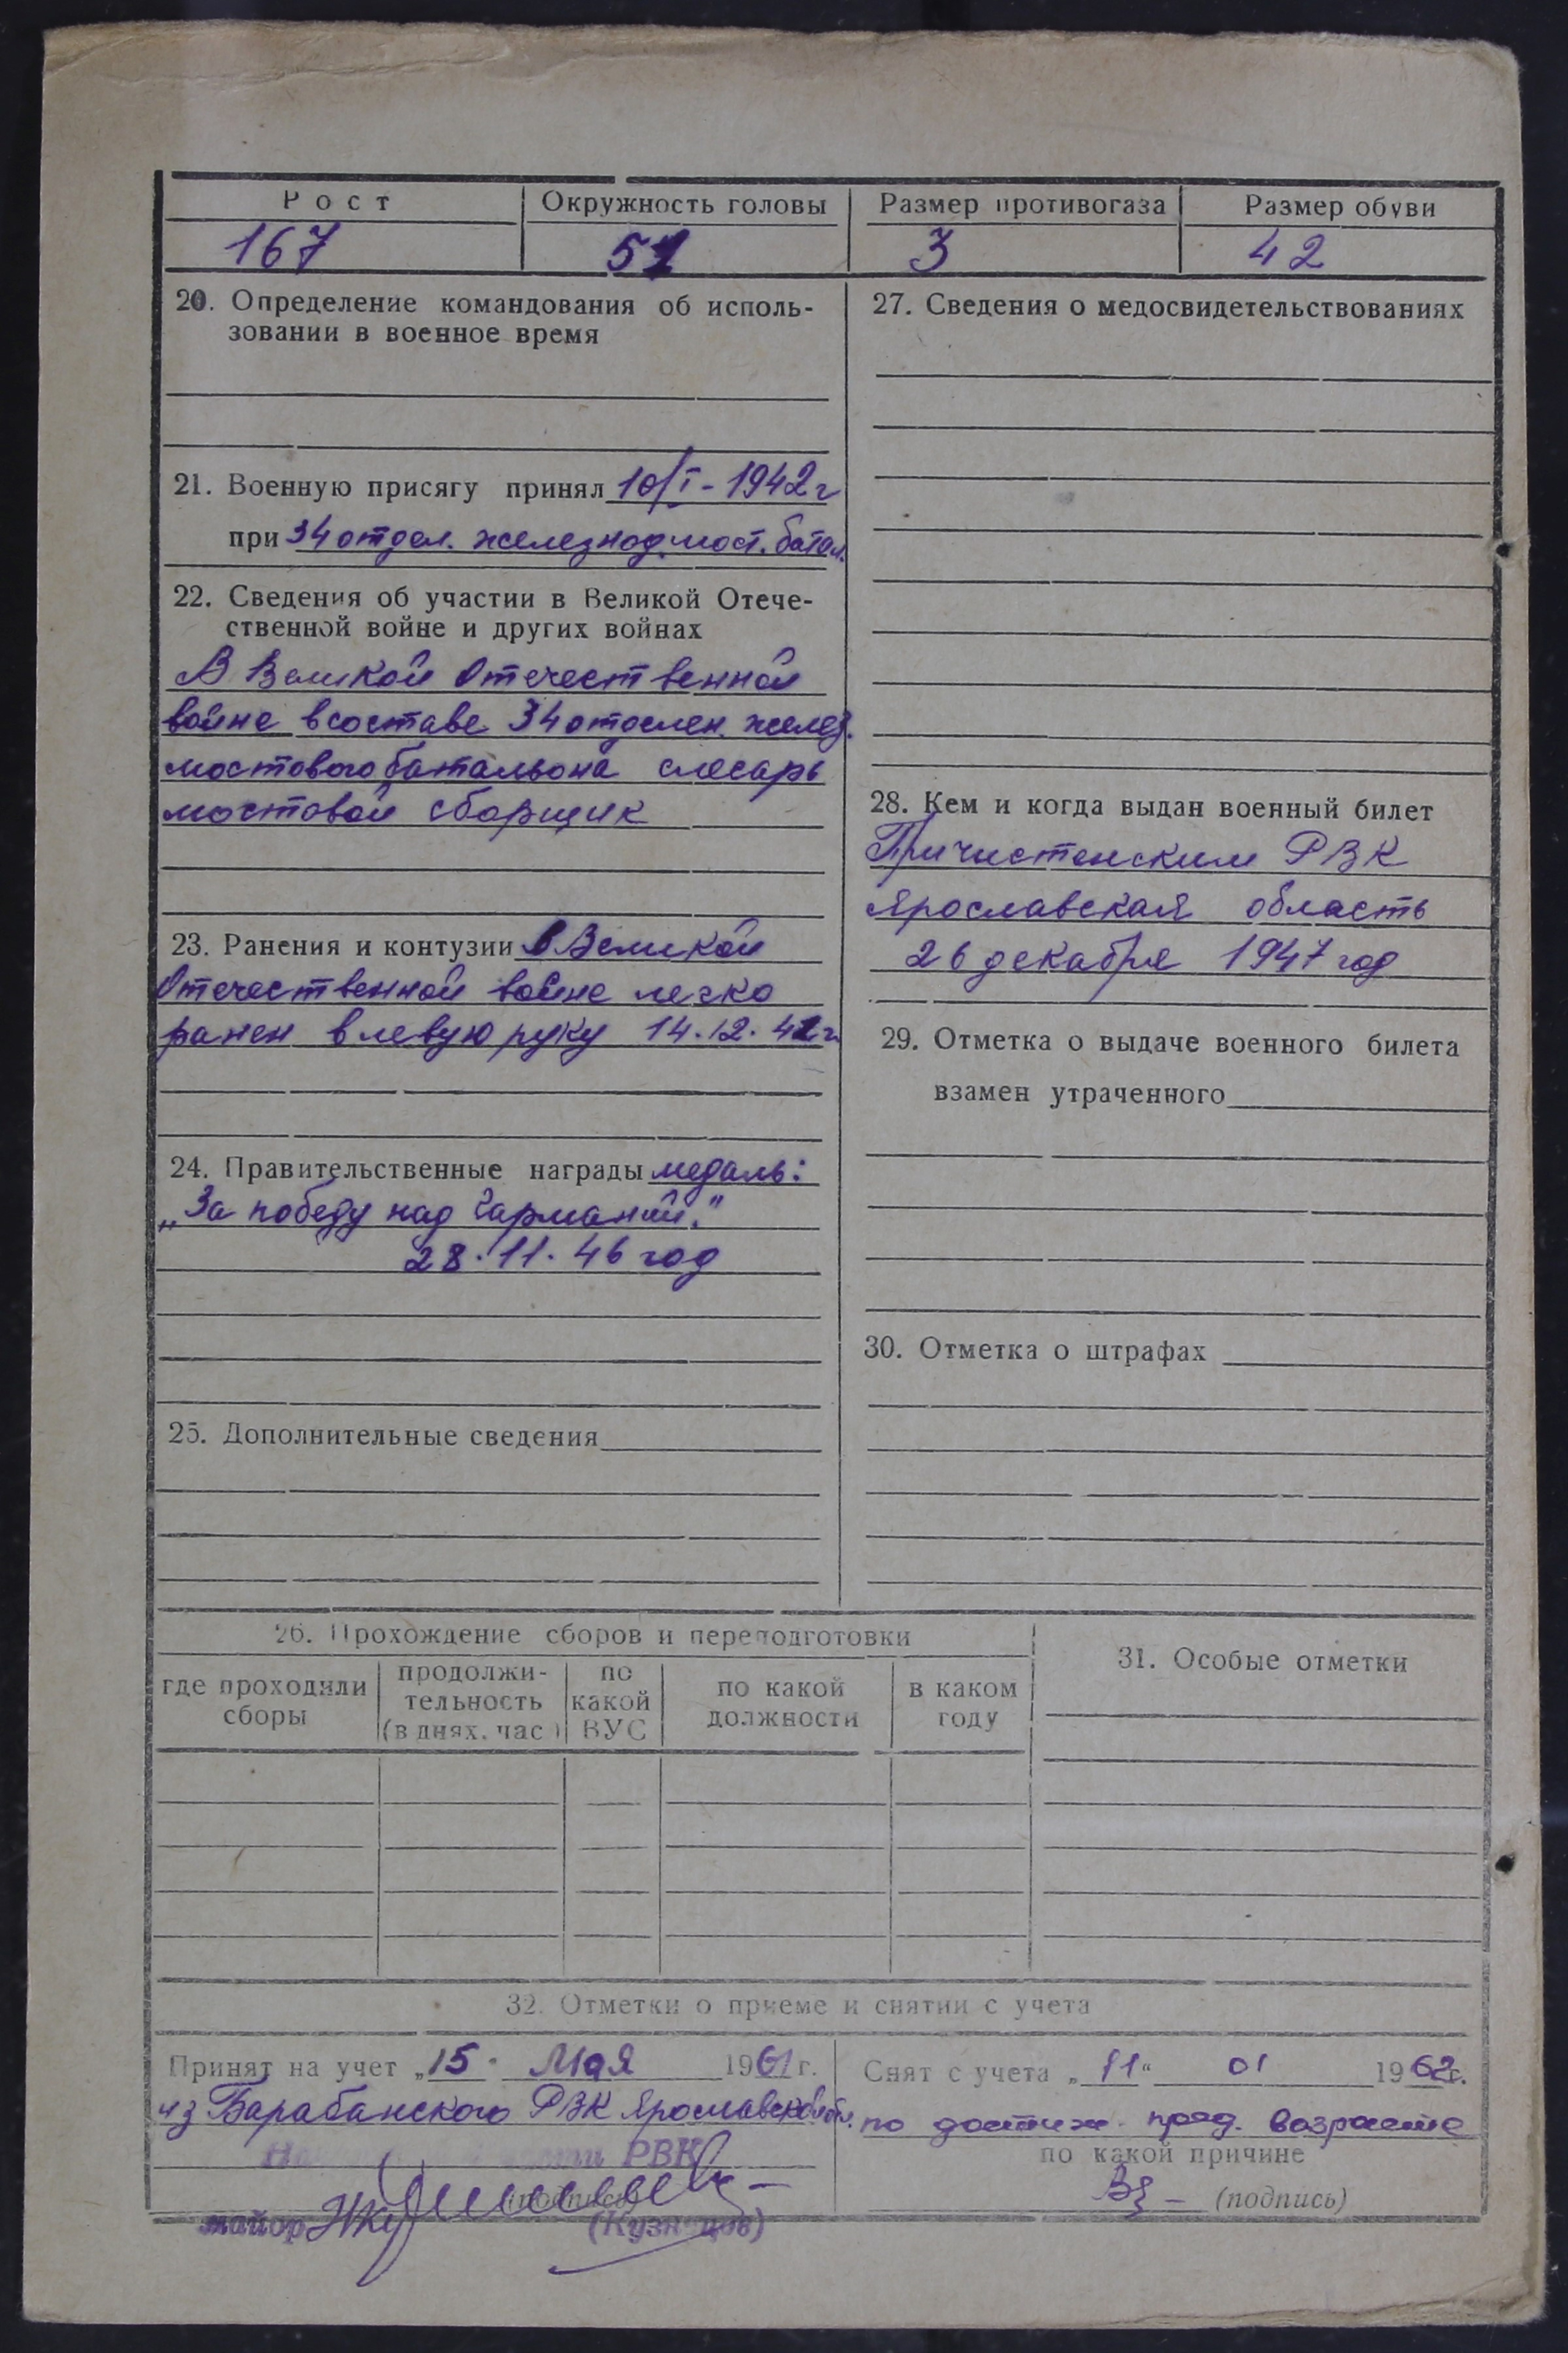 Рост
Окружность головы
Размер противогаза
Размер обуви
167
51
3
42
20. Определение командования об исполь-
зовании в военное время
21. Военную присягу принял 10/I - 1942 г
при 34 отдел. железнод. мост. батал.
22. Сведения об участии в Великой Отече-
ственной войне и других войнах
В Великой Отечественной
войне в составе 34 отделен. желез.
мостового батальона слесарь
мостовой сборщик
23. Ранения и контузии в Великой
Отечественной войне легко
ранен в левую руку 14.12.42 г.
24. Правительственные награды медаль:
„За победу над Германий."
28.11.46 год
25. Дополнительные сведения
27. Сведения о медосвидетельствованиях
28. Кем и когда выдан военный билет
Причистенским РВК
Ярославская область
26 декабря 1947 год
29. Отметка о выдаче военного билета
взамен утраченного
30. Отметка о штрафах
26. Прохождение сборов и переподготовки
где проходили
сборы
продолжи-
тельность
(в днях, час)
по
какой
ВУС
по какой
должности
в каком
году
31. Особые отметки
32. Отметки о приеме и снятии с учета
Принят на учет „15" Мая 1961 г.
из Барабанского РВК Ярославской обл.
РВК
(подпись)
майор (Кузнецов)
Снят с учета „11" 01 1962 г.
по достиж. пред. возрасте
по какой причине
(подпись)